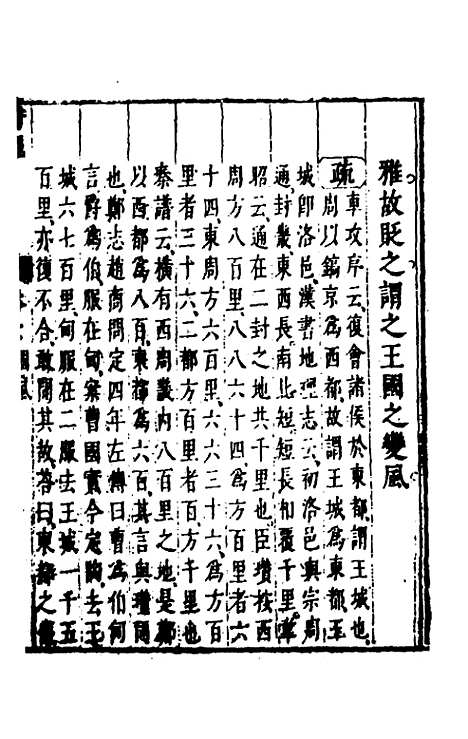 雅故貶之謂之王國之變風
疏 車攻序云復會諸侯於東都謂王城也
周以鎬京爲西都故謂王城爲東都王
城卽洛邑漢書地理志云初洛邑與宗周
通封畿東西長南北短短長相覆千里韋
昭云通在二封之地共千里也臣瓚按西
周方八百里八八六十四爲方百里者六
十四東周方六百里六六三十六爲方百
里者三十六二都方百里者百方千里也
秦譜云橫有西周畿內八百里之地是鄭
以西都爲八百東都爲六百其言與瓚同
也鄭志趙商問定四年左傳曰曹爲伯甸
言爵爲伯服在甸案曹國實今定陶去王
城六七百里甸服在二服去王城一千五
百里亦復不合敢問其故荅曰東都之